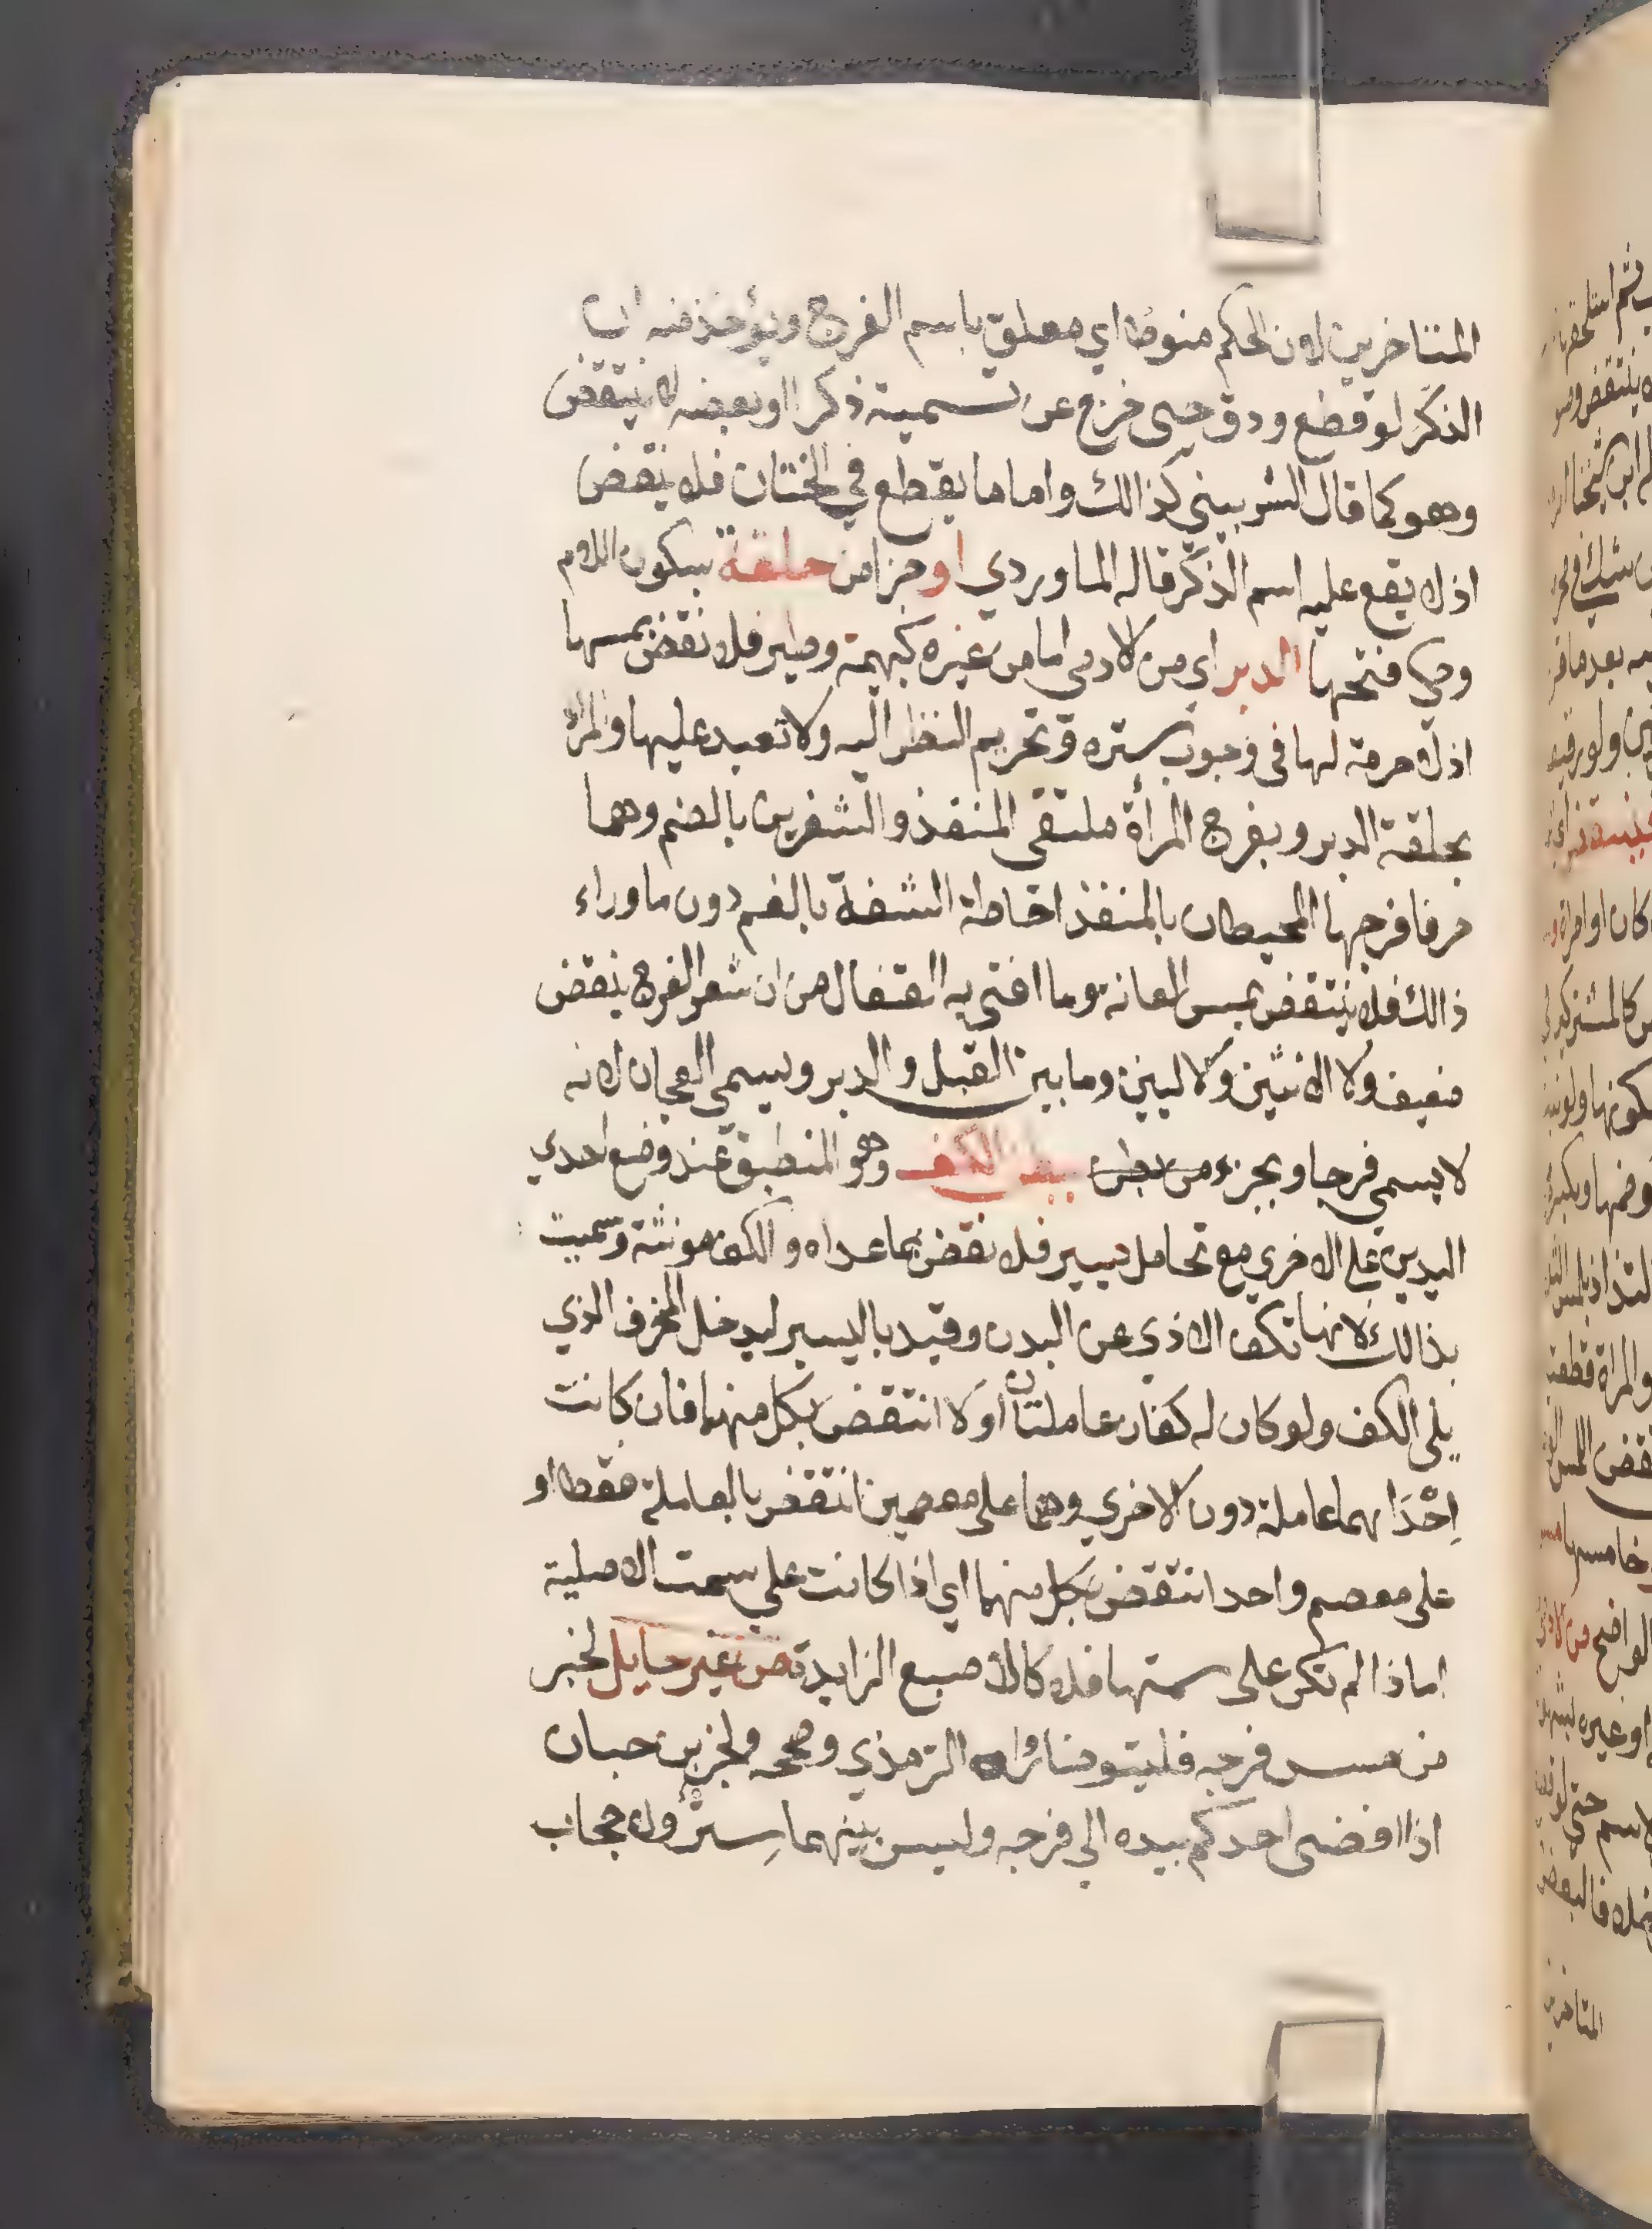 المتاخرين لان الحكم منوط اي معلق باسم الفرج ويؤخذ منه ان
الذكر لو قطع ودق حتى خرج عن تسمية ذكرا او بعضه لا ينتقض
وهو كما قال الشربيني كذالك واما ما يقطع في الختان فلا نقض
اذ لا يقع عليه اسم الذكر قاله الماوردي او جزا من حلقة بسكون اللام
وحكي فتحها الدبر اي من الادمي اما من غيره كبهيمة وطير فلا نقض بمسها
اذ لا حرمة لها في وجوب ستره وتحريم النظر اليه ولا تعبد عليها والمراد
بحلقة الدبر وبفرج المرأة ملتقى المنفذ والشفرين بالضم وهما
حرفا فرجها المحيطان بالمنفذ احاطة الشفة بالفم دون ما وراء
ذالك فلا ينتقض بمس العانة وما افتى به القفال من ان شعر الفرج ينقض
ضعيف ولا الانثيين ولا اليين وما بين القبل والدبر ويسمي العجان لانه
لا يسمي فرجا وبجزء من بطن ببطن الكف وهو المنطبق عند وضع احدي
اليدين على الاخري مع تحامل يسير فلا نقض بما عداه والكف مونثة وسميت
بذالك لانها تكف الاذي عن البدن وقيد باليسير ليدخل المحرف الذي
يلي الكف ولو كان له كفان عاملتان اولا انتقض بكل منهما فان كانت
اِحْدَاهما عاملة دون الاخري وهما على معصمين انتقض بالعاملة فقط او
على معصم واحد انتقض بكل منهما اي اذا كانت علي سمت الاصلية
اما اذا لم تكن على سمتها فلا كالاصبع الزايدة من غير حايل لخبر
من مس فرجه فليتوضا رواه الترمذي وصححه ولخبر بن حبان
اذا افضى احدكم بيده الي فرجه وليس بينهما سِتر ولا حجاب